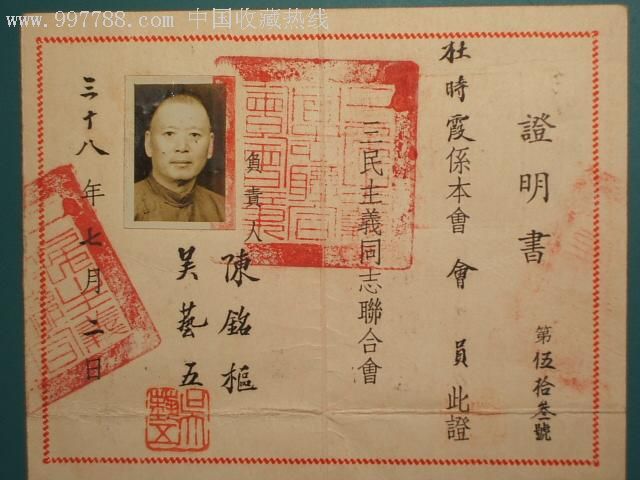 www.997788.com 中国收藏热线
證明書
第伍拾叁號
杜時霞係本會會員此證
三民主義同志聯合會
負責人
陳銘樞
吴藝五
三十八年七月二日